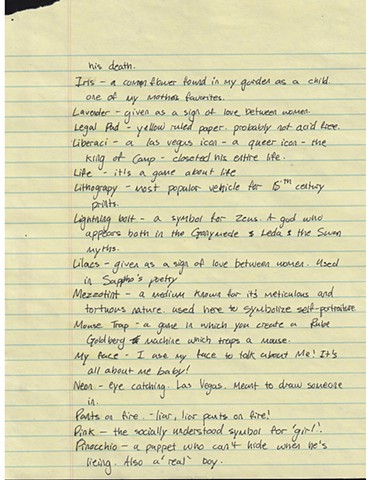 his death.
Iris - a common flower found in my garden as a child.
one of my mothers favorites.
Lavender - given as a sign of love between women.
Legal Pad - yellow ruled paper. probably not acid free.
Liberaci - a las vegas icon - a queer icon - the
king of Camp - closeted his entire life.
Life - it's a game about life
Lithograpy - most popular vehicle for 15TH century
prints.
Lightning bolt - a symbol for Zeus. A god who
appears both in the Ganymede & Leda & the Swan
myths.
Lilacs - given as a sign of love between women. Used
in Sappho's poetry
Mezzotint - a medium known for it's meticulous and
tortuous nature. used here to symbolize self-portraiture.
Mouse Trap - a game in which you create a Rube
Goldberg machine which traps a mouse.
My Face - I use my face to talk about Me! It's
all about me baby!
Neon - eye catching. Las Vegas. Meant to draw someone
in.
Pants on fire. - liar, liar pants on fire!
Pink - the socially understood symbol for 'girl'.
Pinocchio - a puppet who can't hide when he's
lieing. Also a 'real' boy.